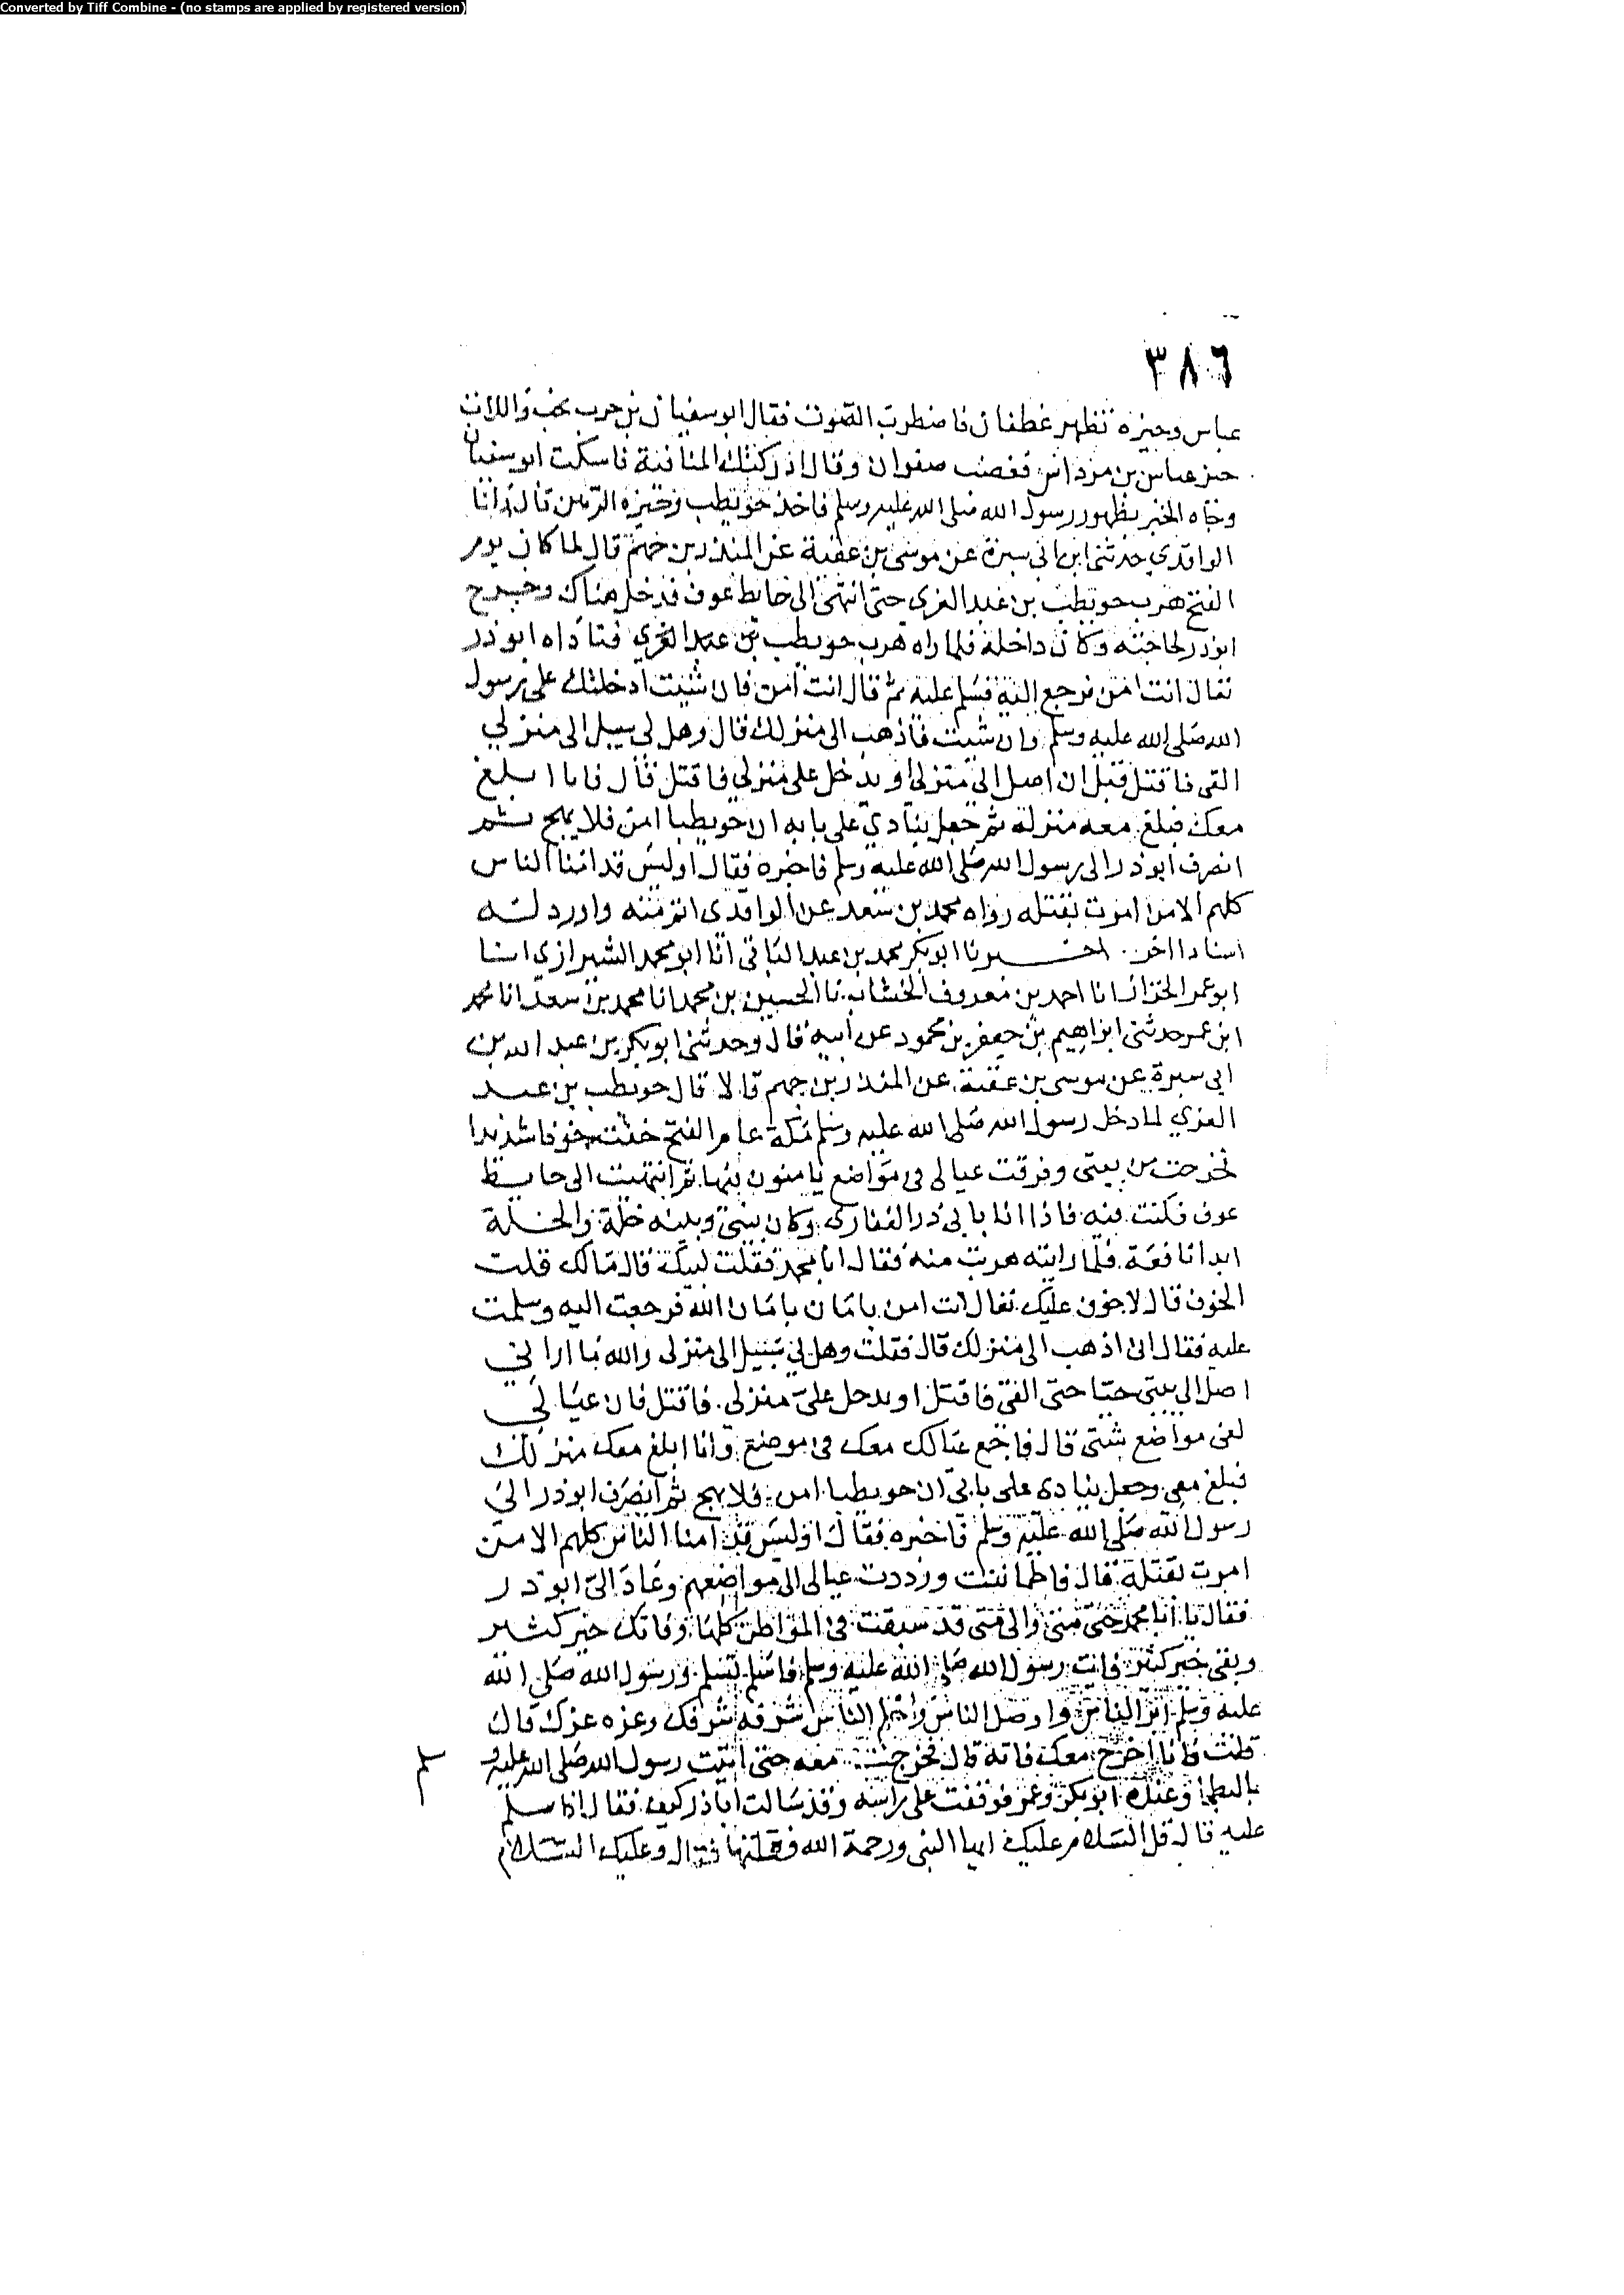 Converted by Tiff Combine - (no stamps are applied by registered version)
٣٨٦
عباس وحيزه تظهر غطفان فاضطرب الصوت فقال ابو سفيان بن حرب نحن واللات
حيز عباس بن مرداس فغضب صفوان وقال ادركتك المنافية فاسكت ابو سفيان
وجاه الخبر بظهور رسول الله صلى الله عليه وسلم فاخذ حويطب وحيزه الرهن قال وانا
الواقدي حدثني ابن ابي سبرة عن موسى بن عقبة عن المنذر بن جهم قال لما كان يوم
الفتح هرب حويطب بن عبد العزي حتى انتهى الى حايط عوف فدخل هناك وخرج
ابوذر لحاجته وكان داخله فلما راه هرب حويطب بن عبد العزي فناداه ابو ذر
فقال انت امن فرجع اليه فسلم عليه ثم قال انت امن فان شيت ادخلتك على رسول
الله صلى الله عليه وسلم وان شيت فاذهب الى منزلك قال وهل لي سبيل الى منزلي
القى فاقتل قبل ان اصل الى منزلي او يدخل على منزلي فاقتل قال فانا ابلغ
معك فبلغ معه منزله ثم جعل ينادي على بابه ان حويطبا امن فلا يهج ثم
انصرف ابوذر الى رسول الله صلى الله عليه وسلم فاخبره فقال اوليس قد امنا الناس
كلهم الا من امرت بقتله رواه محمد بن سعد عن الواقدى اتم منه واورد له
اسنادا اخر . اخبرنا ابو بكر محمد بن عبد الباقي انا ابو محمد الشيرازي انا
ابو عمر الخزاز انا احمد بن معروف الخشاب نا الحسين بن محمد انا محمد بن سعد انا محمد
ابن عمر حدثنى ابراهيم بن جعفر بن محمود عن ابيه قال وحدثنى ابو بكر بن عبد الله بن
ابي سبرة عن موسى بن عقبة عن المنذر بن جهم قالا قال حويطب بن عبد
العزي لما دخل رسول الله صلى الله عليه وسلم مكة عام الفتح خفت خوفا شديدا
فخرجت من بيتى وفرقت عيالى فى مواضع يامنون فيها ثم انتهيت الى حايط
عوف فكنت فيه فاذا انا بابى ذر الغفارى وكان بينى وبينه خلة والخلة
ابدا نافعة فلما رايته هربت منه فقال ابا محمد فقلت لبيك قال مالك قلت
الخوف قال لا خوف عليك تعال انت امن بامان الله فرجعت اليه وسلمت
عليه فقال اذهب الى منزلك قال فقلت وهل لي سبيل الى منزلى والله ما اراني
اصل الى بيتى حيا حتى الفى فاقتل او يدخل علي منزلى فاقتل فان عيالي
لفى مواضع شتى قال فاجمع عيالك معك فى موضع وانا ابلغ معك منزلك
فبلغ معى وجعل ينادى على بابى ان حويطبا امن فلا يهج ثم انصرف ابوذر الى
رسول الله صلى الله عليه وسلم فاخبره فقال اوليس قد امنا الناس كلهم الا من
امرت بقتله قال فاطماننت ورددت عيالى الى مواضعهم وعاد الى ابو ذر
فقال يا ابا محمد حتى متى والى متى قد سبقت فى المواطن كلها وفاتك خير كثير
وبقى خير كثير فات رسول الله صلى الله عليه وسلم فاسلم تسلم ورسول الله صلى الله
عليه وسلم ابر الناس واوصل الناس واحلم الناس شرفه شرفك وعزه عزك قال
قلت فانا اخرج معك فاته قال فخرجت معه حتى اتيت رسول الله صلى الله عليه و سلم
بالبطحا وعنده ابو بكر وعمر فوقفت على راسه وقد سالت اباذر كيف فقال اذا سلم
عليه قاله قل السلام عليك ايها النبى ورحمة الله فقلتها فقال وعليك السلام